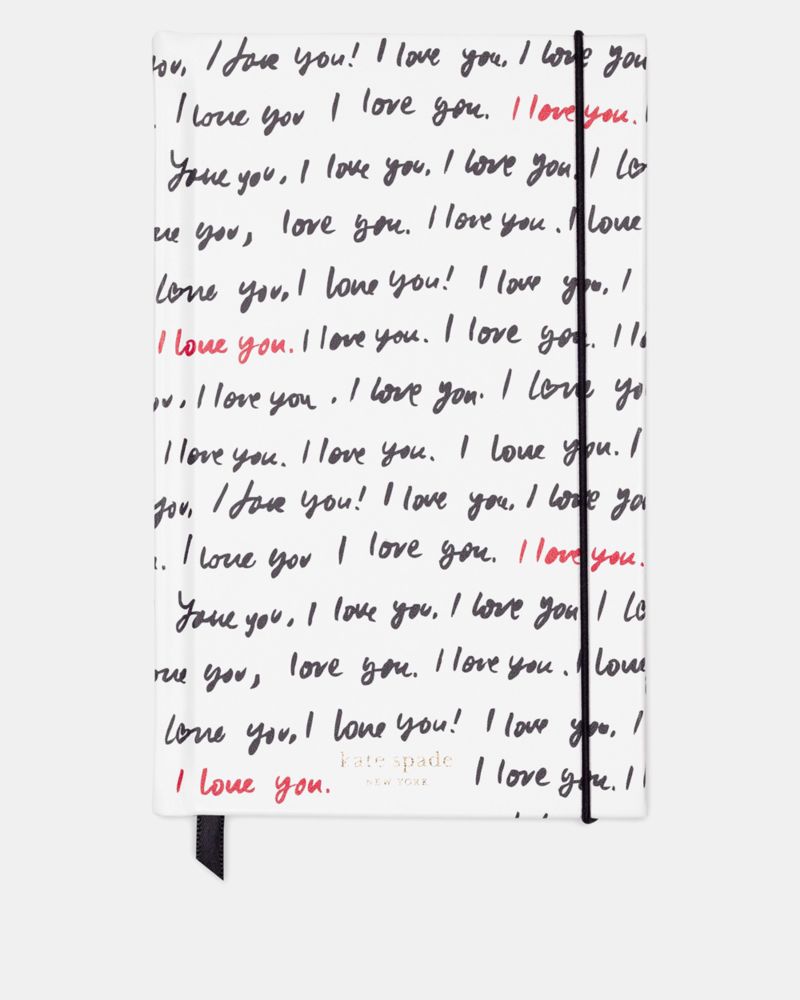 you, I love you! I love you, I love you
. I love you I love you. I love you.
love you, I love you, I love you, I lo
ve you, love you. I love you. I love
love you, I love you! I love you, I
I love you. I love you. I love you. I lo
you, I love you, I love you. I love yo
I love you. I love you. I love you. I
you, I love you! I love you, I love you
. I love you I love you. I love you.
love you, I love you, I love you I lo
ove you, love you. I love you. I love
love you, I love you! I love you, I
kate spade
NEW YORK
I love you. I love you. I l